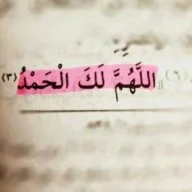 اللَّهُمَّ لَكَ الْحَمْدُ (٣)